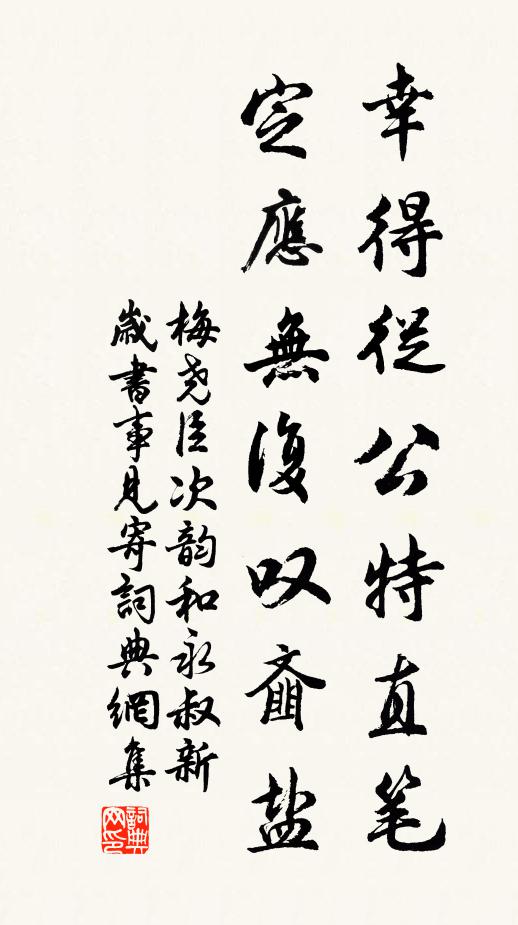 幸得從公特直笔
定應無復叹齑盐
梅尧臣次韵和永叔新
歲書事見寄詞典網集
詞典网印